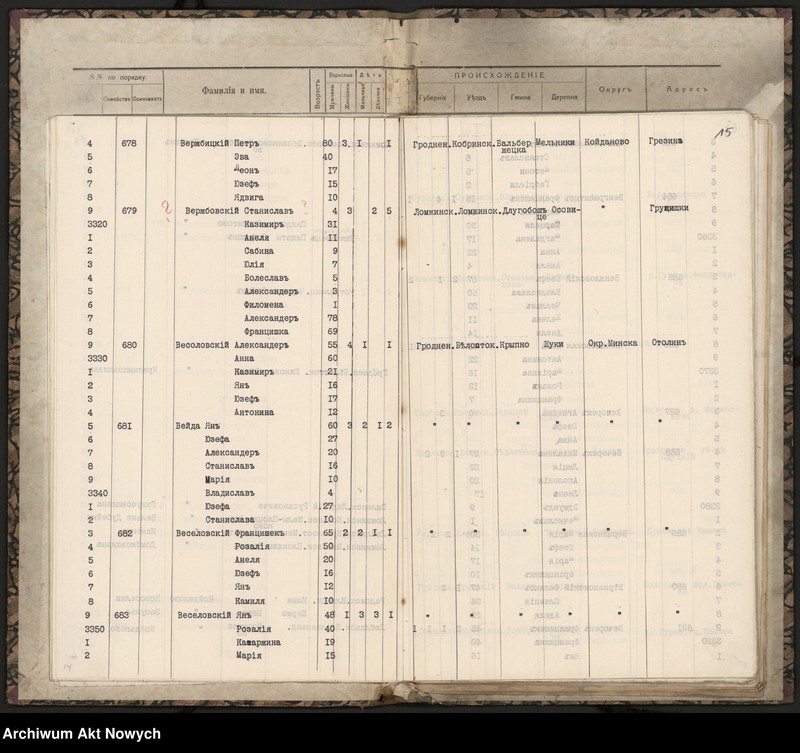 №№ по порядку.
Семействъ Одиночекъ
Фамилія и имя.
Возрастъ
Взрослые
Мужчины
Женщины
Дѣти
Мальчики
Дѣвочки
ПРОИСХОЖДЕНІЕ
Губернія Уѣздъ Гмина Деревня
Округъ
Адресъ
15
4 678 Вержбицкій Петръ 80 3 I I Гроднен. Кобринск. Бальбержецка Мельники Койданово Грезина
5 Эва 40
6 Леонъ 17
7 Юзефъ 15
8 Ядвига 10
9 679 ? Вержбовскій Станиславъ 4 3 2 5 Ломжинск. Ломжинск. Длугобошъ Осовице " Груцишки
3320 Казимиръ 3I
I Анеля II
2 Сабина 9
3 Юлія 7
4 Болеславъ 5
5 Александеръ 3
6 Филомена I
7 Александеръ 78
8 Францишка 69
9 680 Весоловскій Александеръ 55 4 I I Гроднен. Бѣлосток. Крыпно Жуки Окр.Минска Отолинъ
3330 Анна 60
I Казимиръ 2I
2 Янъ 16
3 Юзефъ 17
4 Антонина 12
5 68I Вейда Янъ 60 3 2 I 2 " " " " " "
6 Юзефа 27
7 Александеръ 20
8 Станиславъ 16
9 Марія 10
3340 Владиславъ 4
I Юзефа 27
2 Станислава 10
3 682 Веселовскій Францишекъ 65 2 2 I I " " " " " "
4 Розалія 50
5 Анеля 20
6 Юзефъ 16
7 Янъ 12
8 Камиля 10
9 683 Веселовскій Янъ 48 I 3 3 I " " " " " "
3350 Розалія 40
I Катаржина 19
2 Марія 15
14
Archiwum Akt Nowych